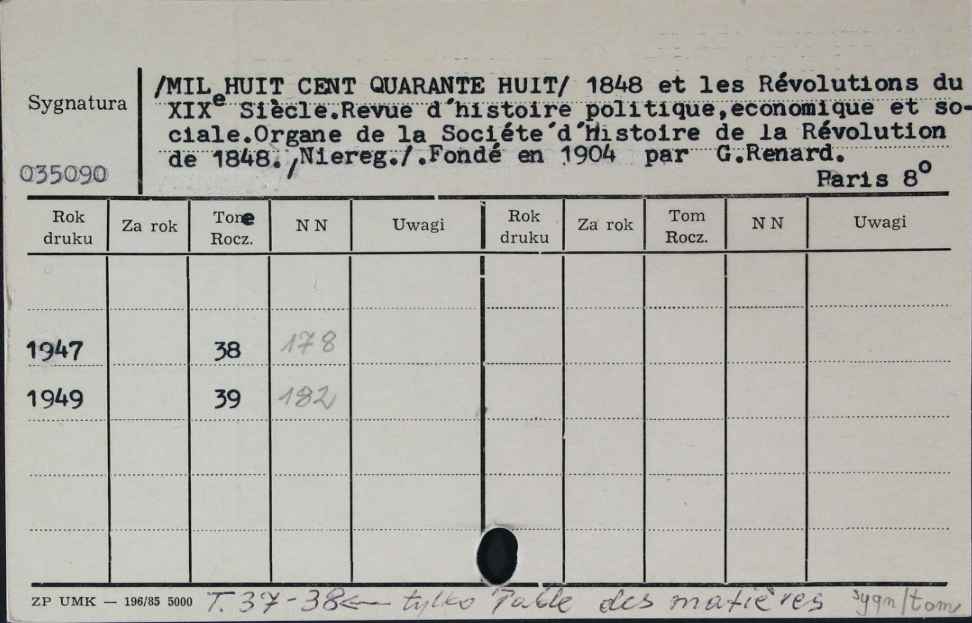 /MIL HUIT CENT QUARANTE HUIT/ 1848 et les Révolutions du
Sygnatura XIXe Siècle.Revue d'histoire politique,economique et so-
ciale.Organe de la Sociéte d'Histoire de la Révolution
de 1848./Niereg./.Fondé en 1904 par G.Renard.
035090 Paris 8°
Rok druku Za rok Tom Rocz. N N Uwagi Rok druku Za rok Tom Rocz. N N Uwagi
1947 38 178
1949 39 182
ZP UMK — 196/85 5000 T. 37-38 ← tylko Table des matières sygn/tom